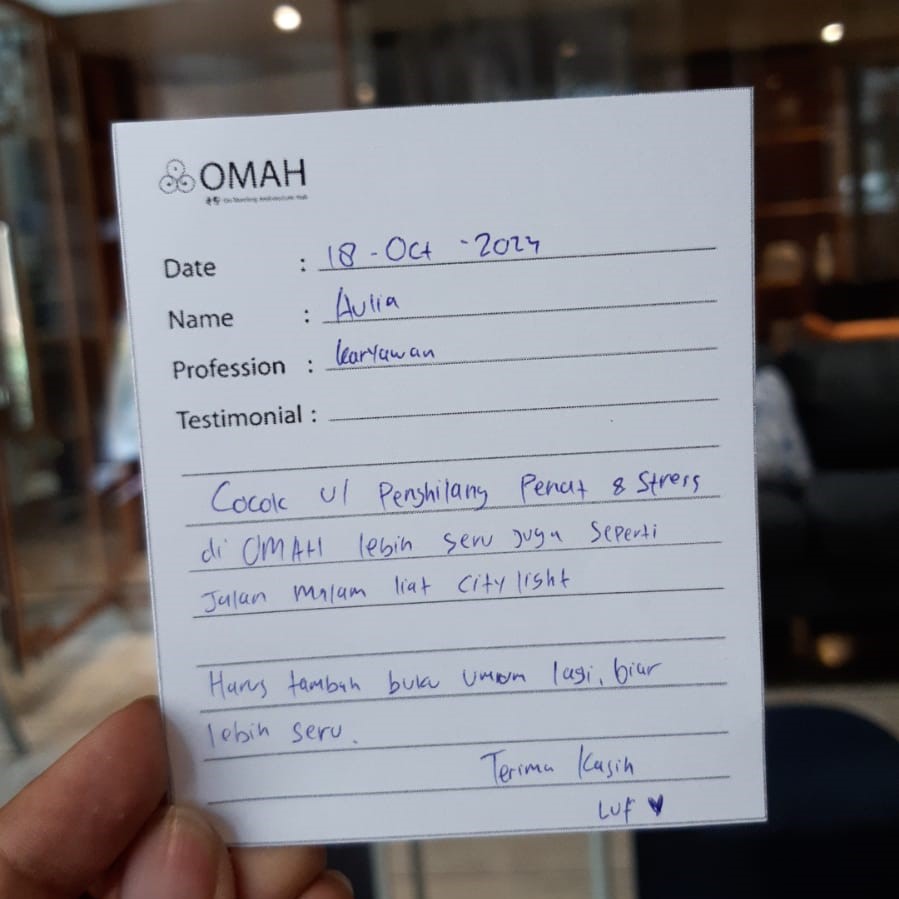 OMAH
Date : 18 - Oct - 2024
Name : Aulia
Profession : karyawan
Testimonial :
Cocok u/ Penghilang Penat & Stress
di OMAH lebih seru juga seperti
Jalan malam liat city light
Harus tambah buku umum lagi, biar
lebih seru.
Terima Kasih
Luf ♥